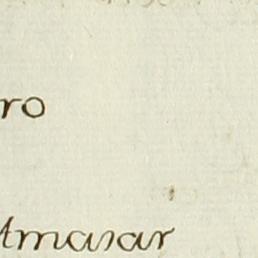 ro
Amasar